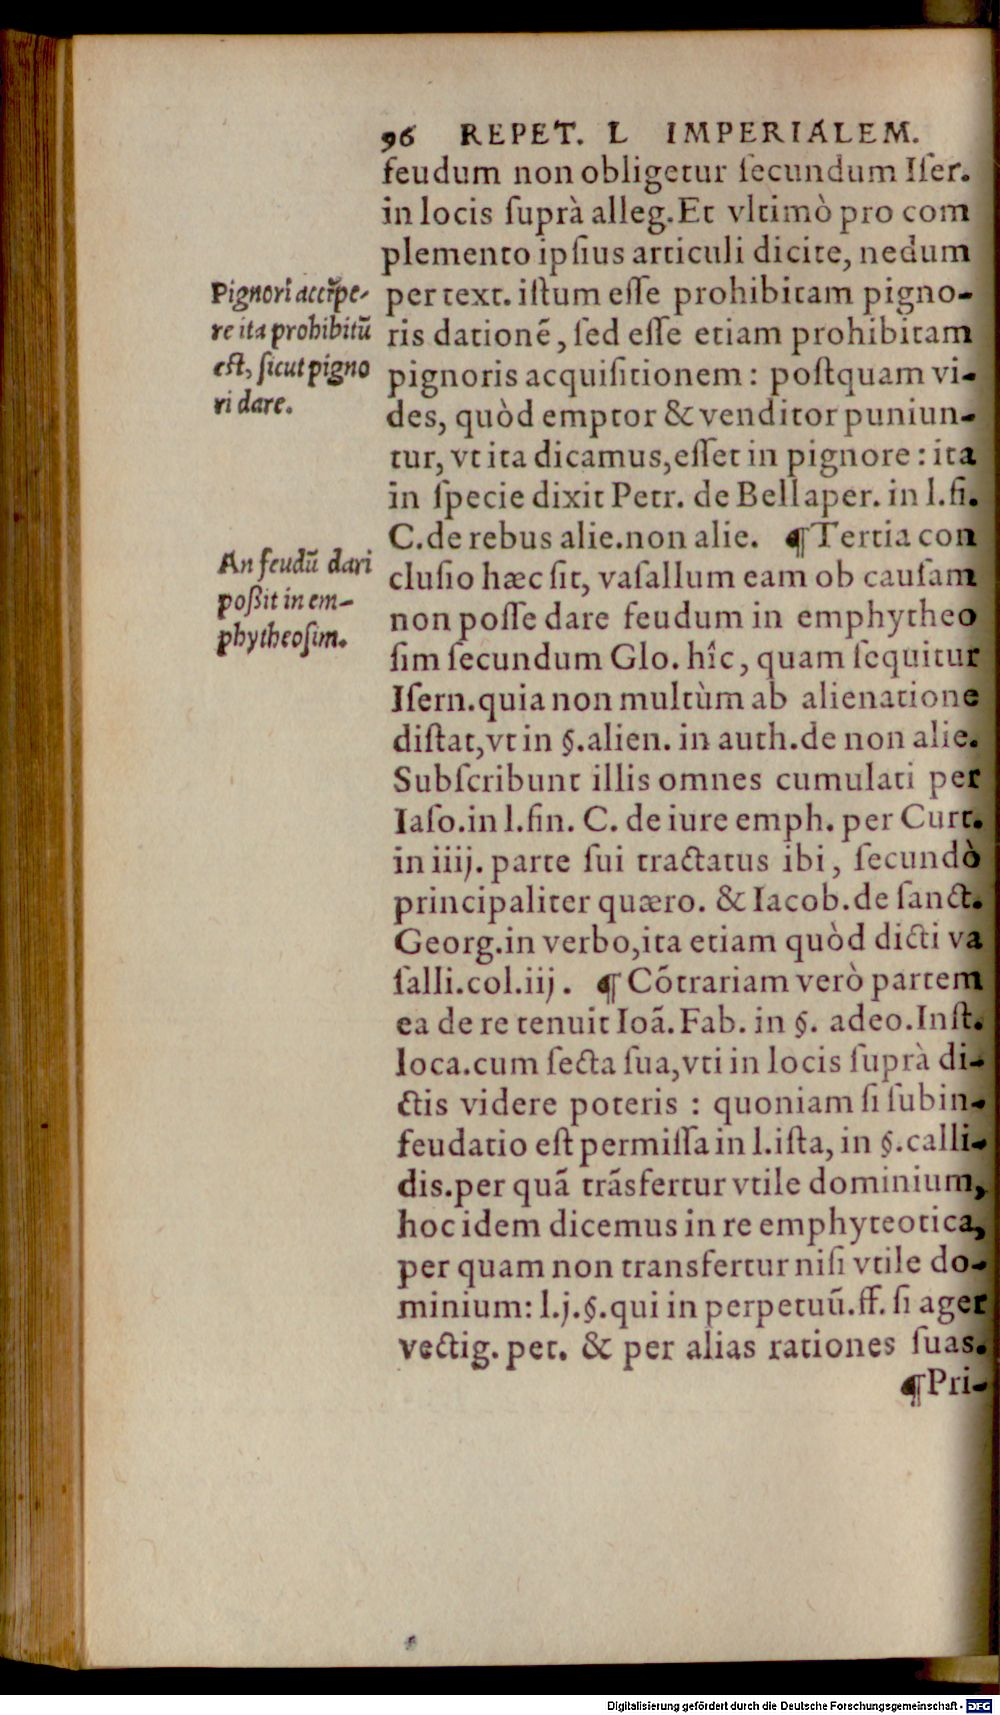 96 REPET. L IMPERIALEM.
feudum non obligetur ſecundum Iſer.
in locis ſuprà alleg. Et vltimò pro com
plemento ipſius articuli dicite, nedum
per text. iſtum eſſe prohibitam pigno-
ris dationē, ſed eſſe etiam prohibitam
pignoris acquiſitionem : poſtquam vi-
des, quòd emptor & venditor puniun-
tur, vt ita dicamus, eſſet in pignore : ita
in ſpecie dixit Petr. de Bellaper. in l. fi.
C. de rebus alie. non alie. ¶ Tertia con
cluſio hæc ſit, vaſallum eam ob cauſam
non poſſe dare feudum in emphytheo
ſim ſecundum Glo. hîc, quam ſequitur
Iſern. quia non multùm ab alienatione
diſtat, vt in §. alien. in auth. de non alie.
Subſcribunt illis omnes cumulati per
Iaſo. in l. fin. C. de iure emph. per Curt.
in iiij. parte ſui tractatus ibi, ſecundò
principaliter quæro. & Iacob. de ſanct.
Georg. in verbo, ita etiam quòd dicti va
ſalli. col. iij. ¶ Cōtrariam verò partem
ea de re tenuit Ioā. Fab. in §. adeo. Inſt.
loca. cum ſecta ſua, vti in locis ſuprà di-
ctis videre poteris : quoniam ſi ſubin-
feudatio eſt permiſſa in l. iſta, in §. calli-
dis. per quā trāsfertur vtile dominium,
hoc idem dicemus in re emphyteotica,
per quam non transfertur niſi vtile do-
minium: l. j. §. qui in perpetuū. ff. ſi ager
vectig. pet. & per alias rationes ſuas.
¶ Pri-
Pignori accipe-
re ita prohibitū
eſt, ſicut pigno
ri dare.
An feudū dari
poßit in em-
phytheoſim.
Digitalisierung gefördert durch die Deutsche Forschungsgemeinschaft - DFG